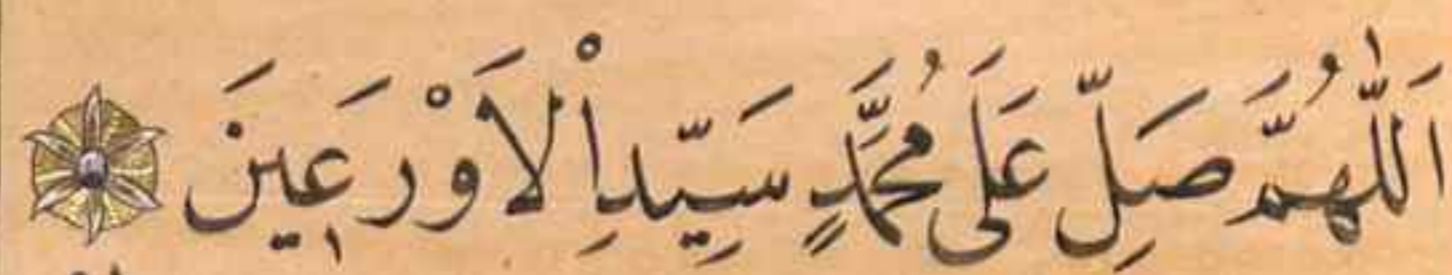 اَللّٰهُمَّ صَلِّ عَلَى مُحَمَّدٍ سَيِّدِ اْلاَوْرَعِينَ